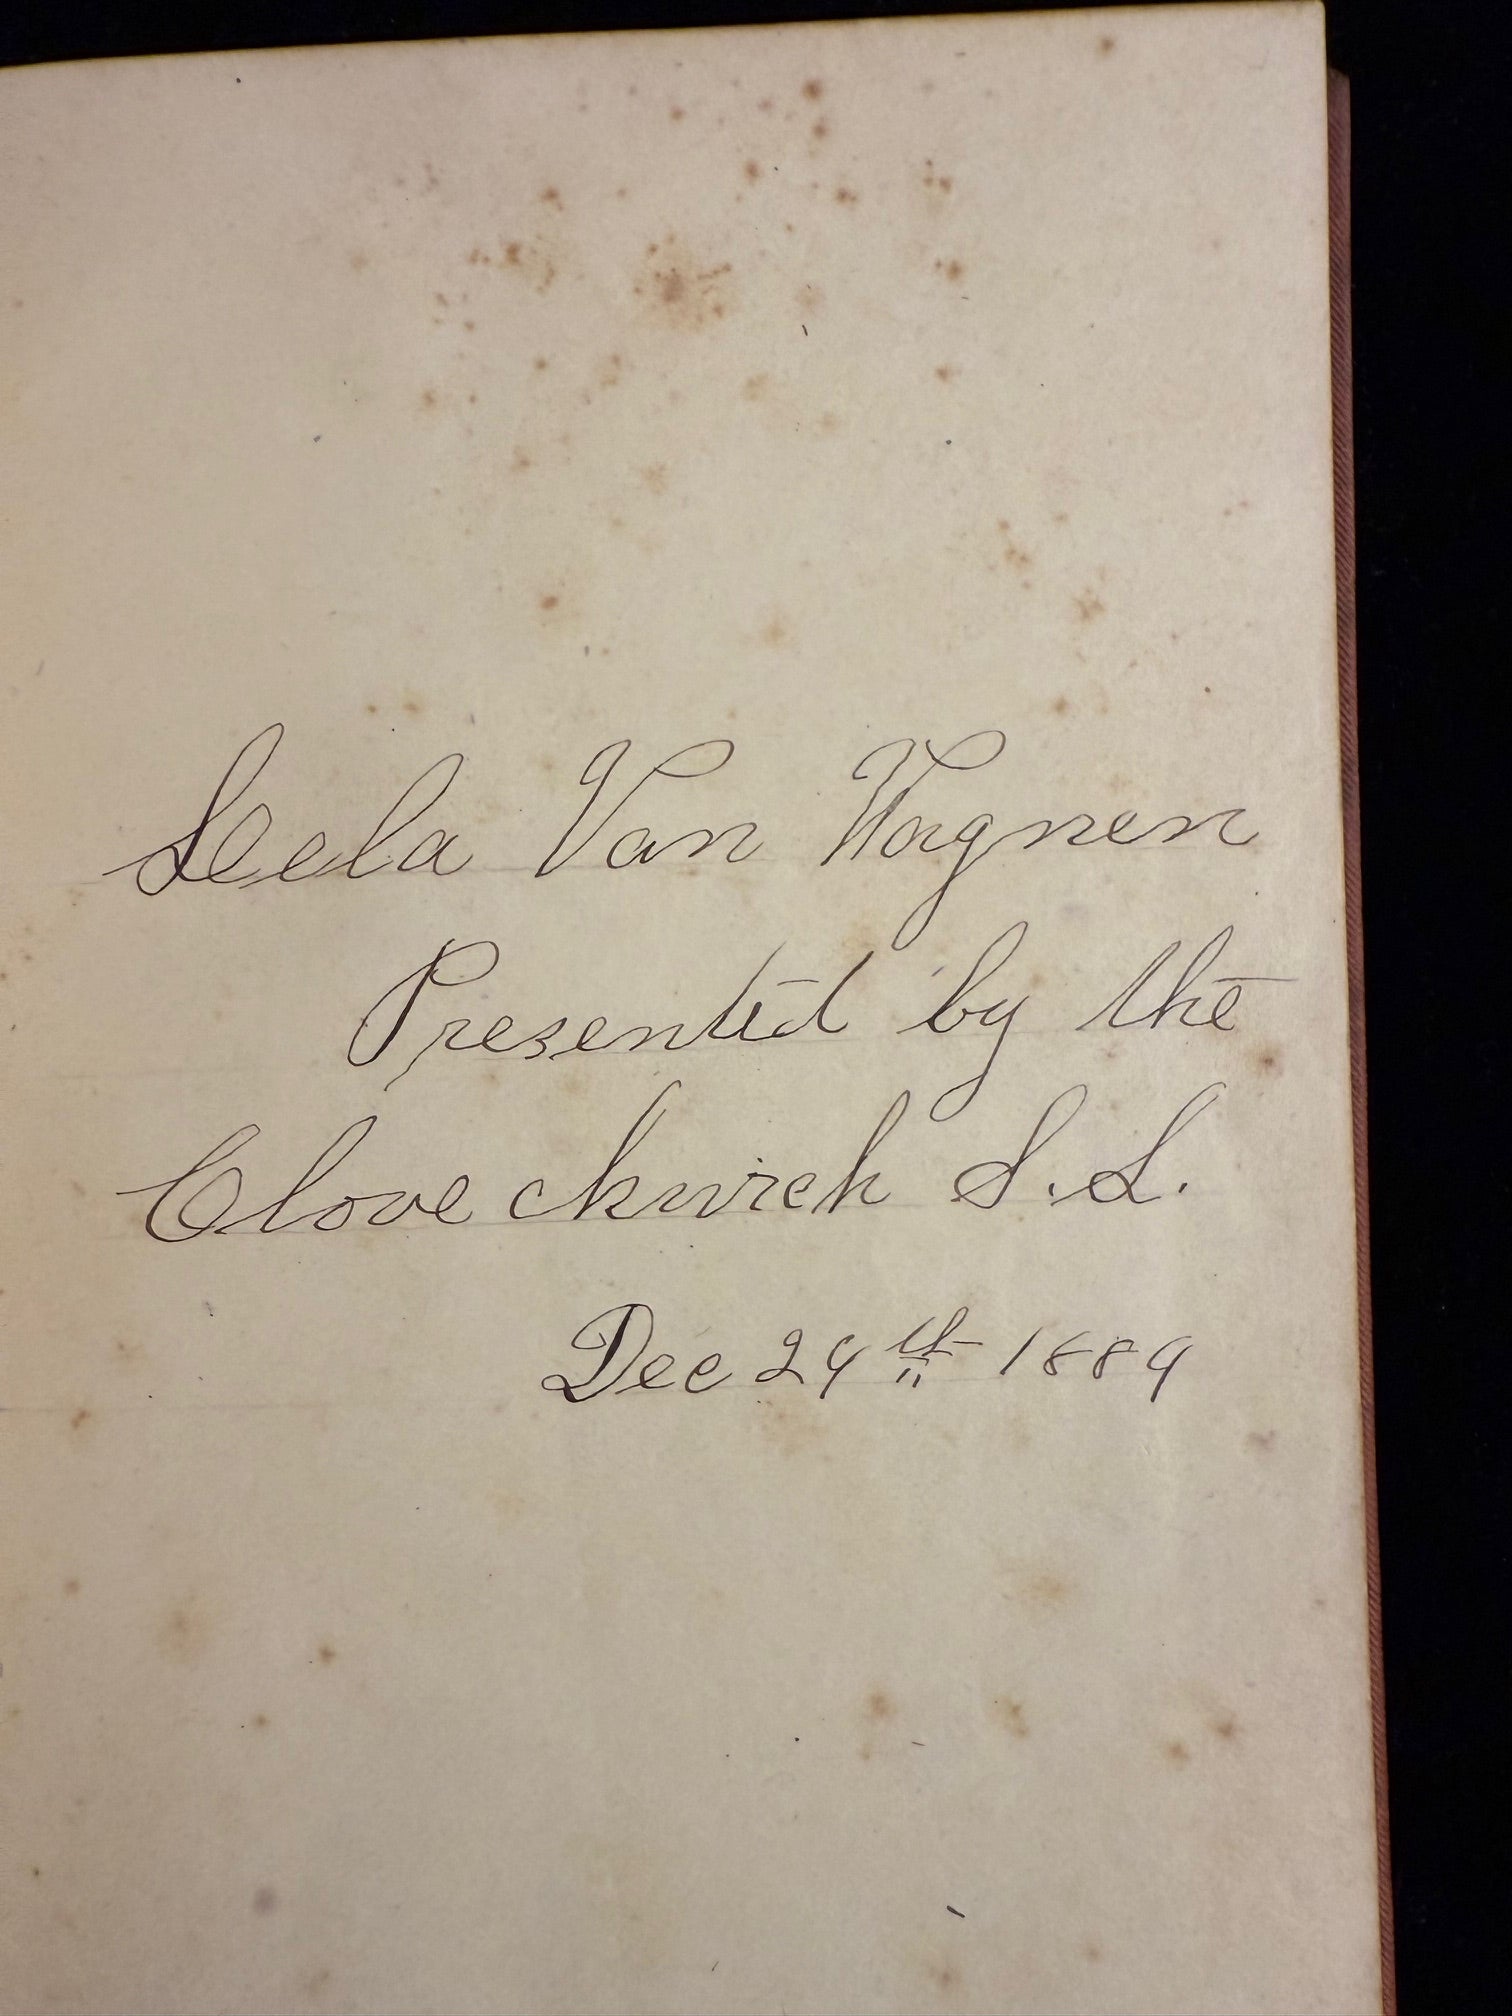 Leela Van Wagnen
Presented by the
Clove church S. S.
Dec 24th 1889